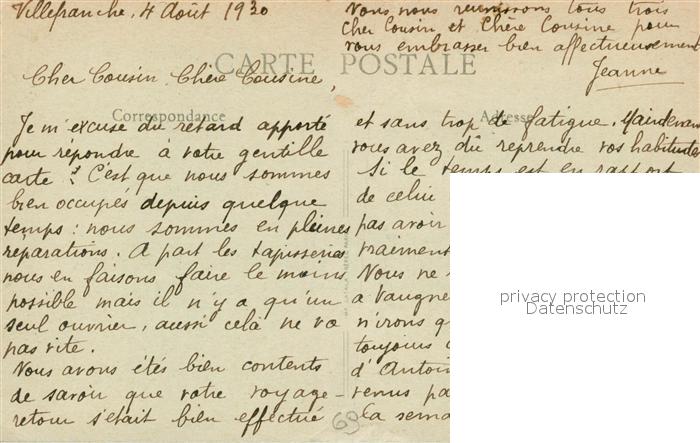 Villefranche, 4 Août 1930
CARTE POSTALE
Cher Cousin, Chère Cousine,
Correspondance
Je m'excuse du retard apporté
pour répondre à votre gentille
carte : C'est que nous sommes
bien occupés depuis quelque
temps : nous sommes en pleines
réparations. A part les tapisseries
nous en faisons faire le moins
possible mais il n'y a qu'un
seul ouvrier, aussi celà ne va
pas vite.
Nous avons étés bien contents
de savoir que votre voyage-
retour s'était bien effectué
Adresse
et sans trop de fatigue. Maintenant
vous avez dû reprendre vos habitudes
Si le temps est en rapport
de celui
pas avoir
vraiment
Nous ne
à Vaugne
n'irons q
toujours
d'Antoin
venus pa
la sema
69
Nous nous réunissons tous trois
Cher Cousin et Chère Cousine pour
vous embrasser bien affectueusement
Jeanne
privacy protection
Datenschutz